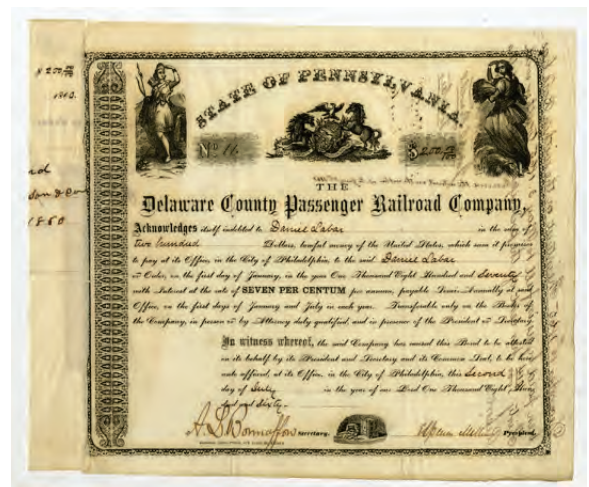 $ 200,00/100
STATE OF PENNSYLVANIA
No 16
$ 200.00/100
THE
Delaware County Passenger Railroad Company,
Acknowledges itself indebted to Daniel Labar in the sum of
two hundred Dollars, lawful money of the United States, which sum it promises
to pay at its Office, in the City of Philadelphia, to the said Daniel Labar
or Order, on the first day of January, in the year One Thousand Eight Hundred and Seventy
with Interest at the rate of SEVEN PER CENTUM per annum, payable Semi-Annually at said
Office, on the first days of January and July in each year. Transferable only on the Books of
the Company, in person or by Attorney duly qualified, and in presence of the President or Secretary.
In witness whereof, the said Company has caused this Bond to be attested
in its behalf by its President and Secretary and its Common Seal, to be here
unto affixed, at its Office, in the City of Philadelphia, this Second
day of July in the year of our Lord One Thousand Eight Hun-
dred and Sixty.
Secretary.
President.
1860